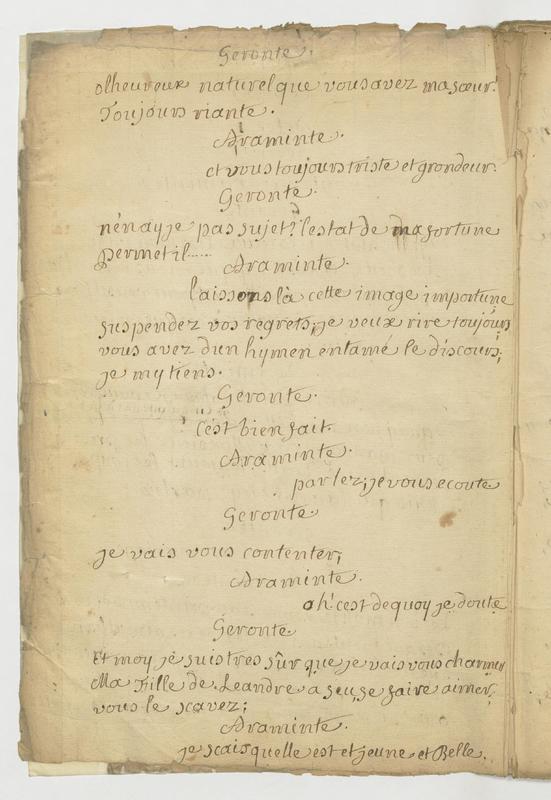 Geronte.
o lheureux naturel que vous avez ma sœur.
Toujours riante.
Araminte.
et vous toujours triste et grondeur.
Geronte
n'énay je pas sujet? lestat de ma fortune
permet il.....
Araminte.
laissons là cette image importune
suspendez vos regrets, je veux rire toujours
vous avez dun hymen entamé le discours;
je my tiens.
Geronte.
c'est bien fait.
Araminte.
parlez; je vous ecoute
Geronte
je vais vous contenter;
Araminte.
ah! cest dequoy je doute
Geronte.
Et moy je suis tres sûr que je vais vous charmer
Ma Fille de Leandre a seu se faire aimer,
vous le scavez;
Araminte.
je scais quelle est et jeune et Belle.